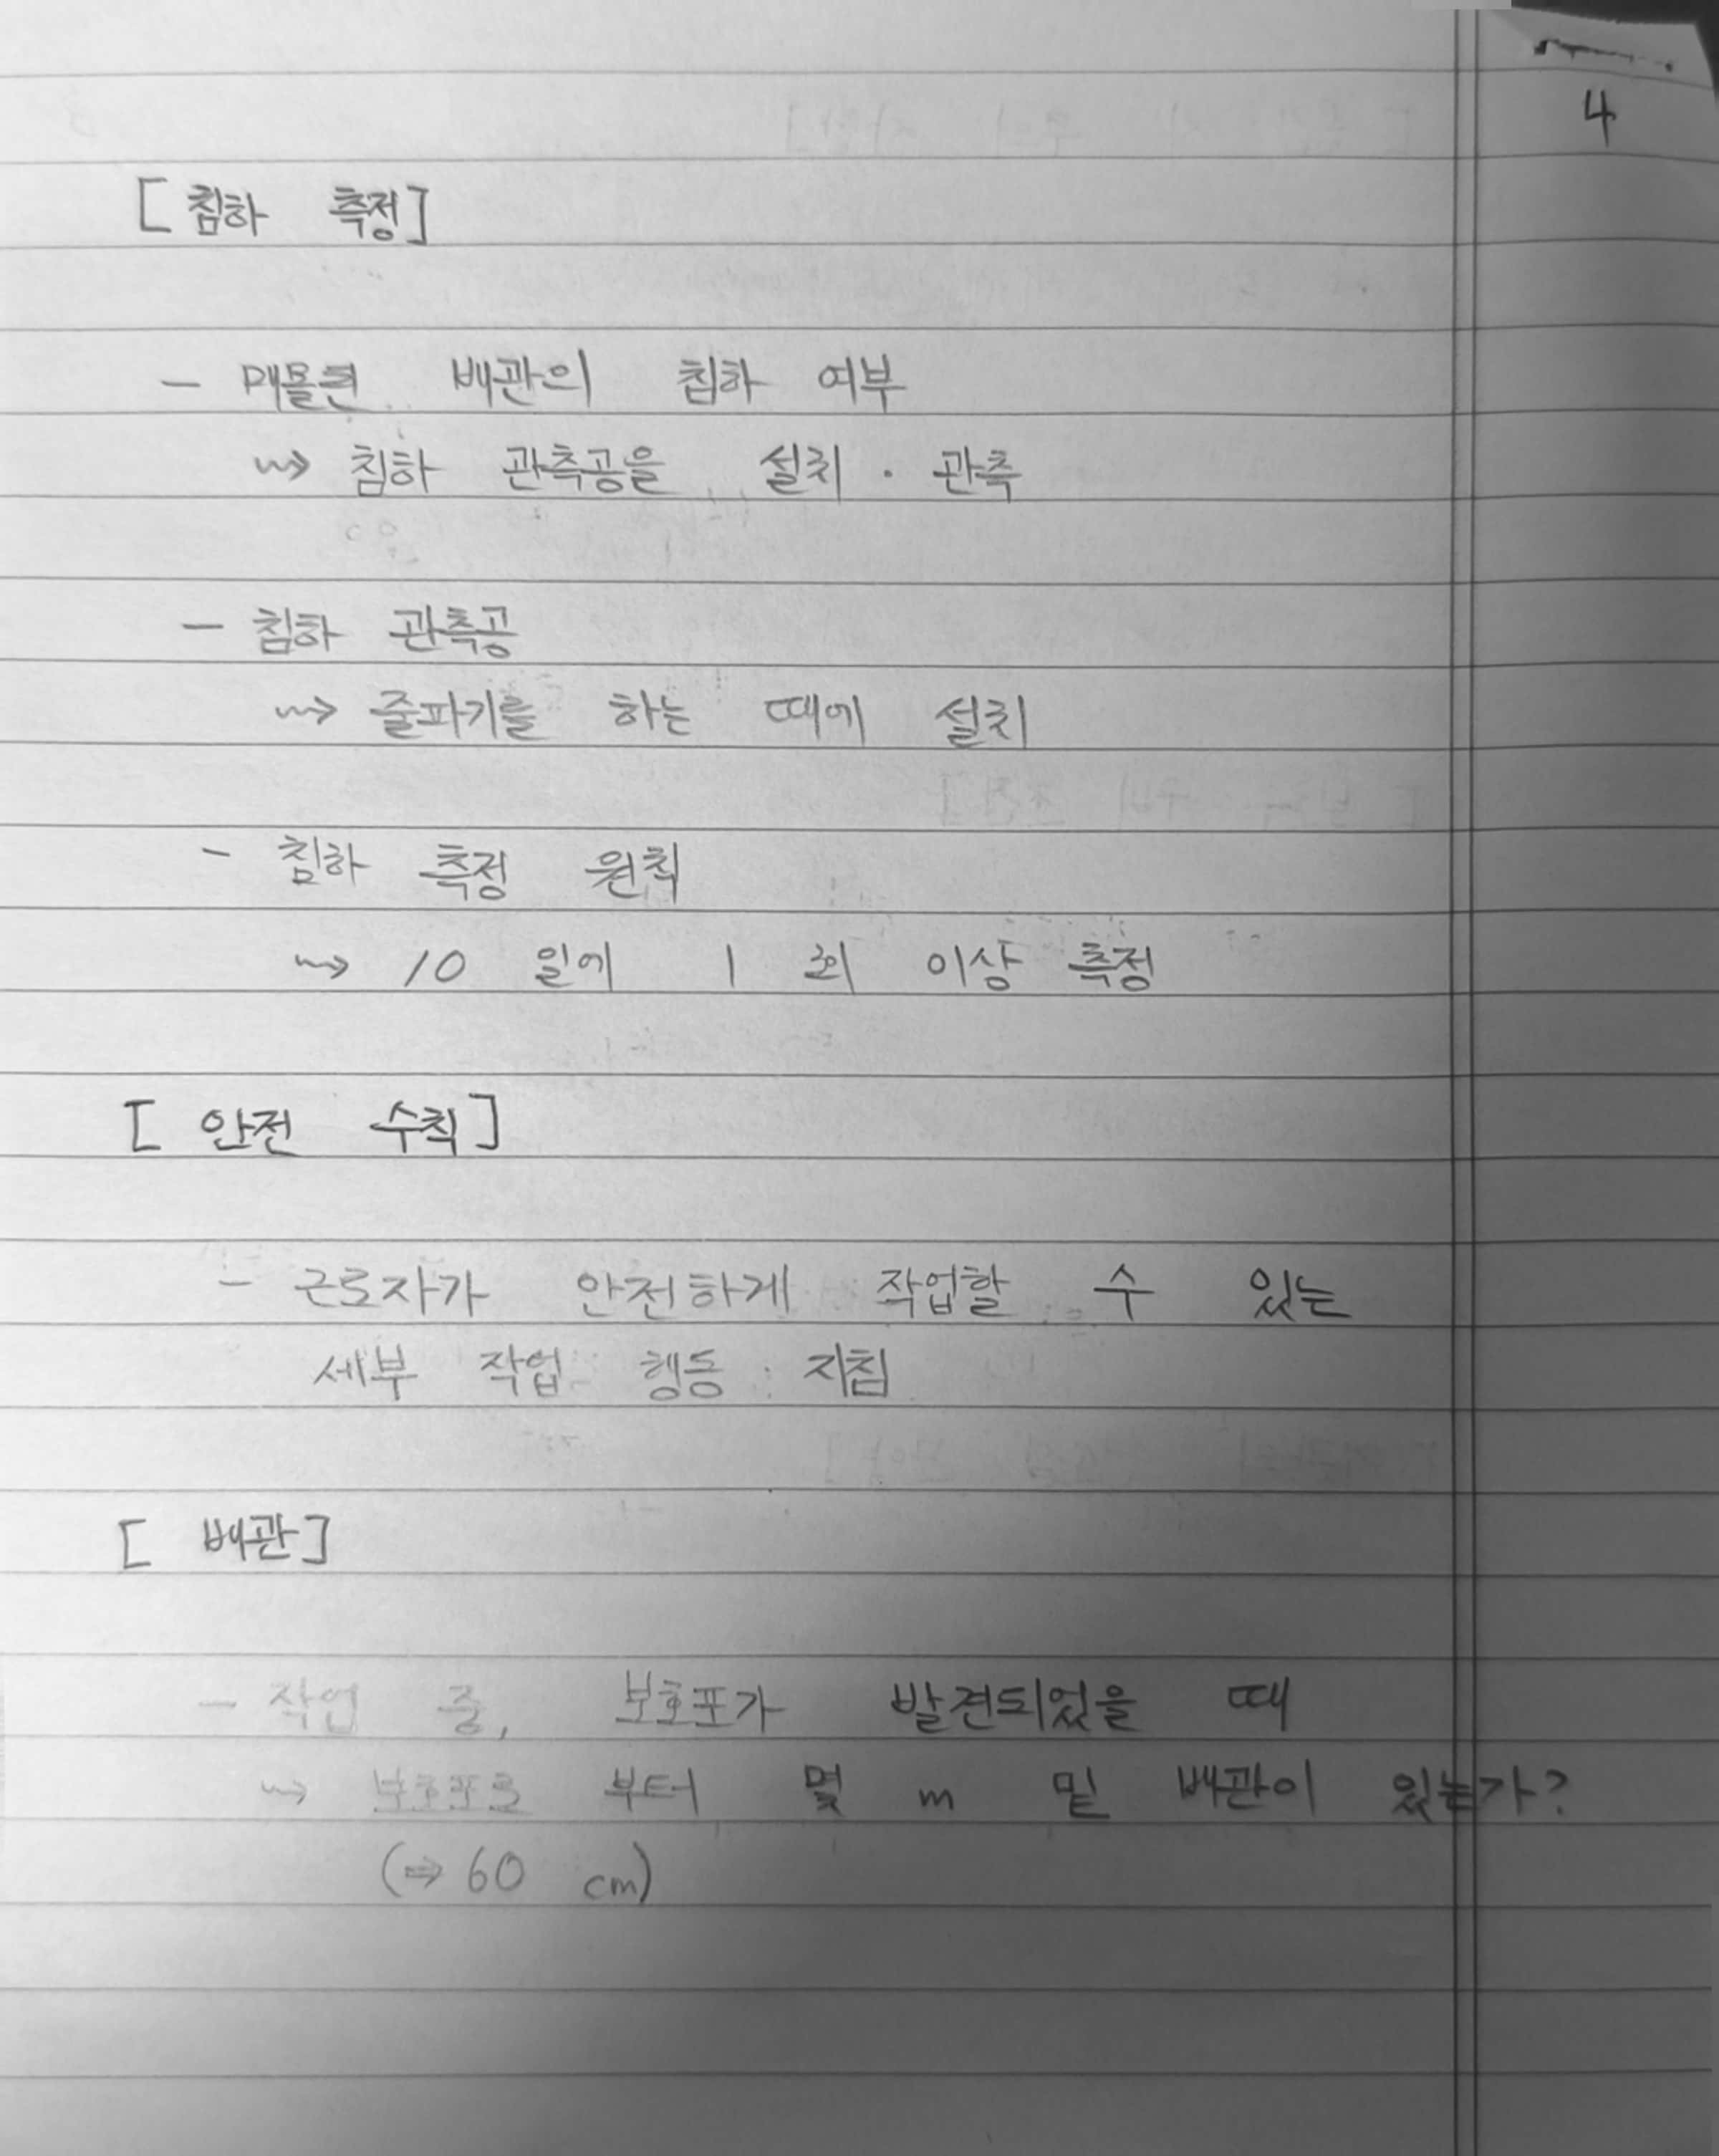 4
[침하 측정]
- 매몰된 배관의 침하 여부
⇝ 침하 관측공을 설치 · 관측
- 침하 관측공
⇝ 줄파기를 하는 때에 설치
- 침하 측정 원칙
⇝ 10 일에 1 회 이상 측정
[안전 수칙]
- 근로자가 안전하게 작업할 수 있는
세부 작업 행동 지침
[배관]
- 작업 중, 보호포가 발견되었을 때
⇝ 보호포로 부터 몇 m 밑 배관이 있는가?
(⇒ 60 cm)